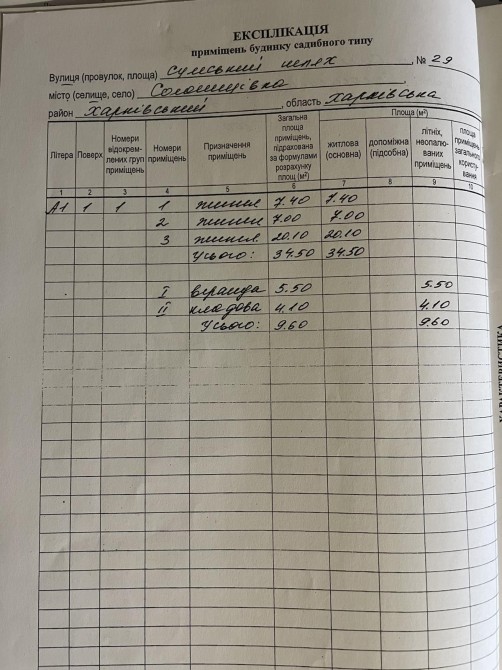 ЕКСПЛІКАЦІЯ
приміщень будинку садибного типу
Вулиця (провулок, площа) Сумський шлях, № 29
місто (селище, село) Солоницівка
район Харківський, область Харківська
Літера
Поверх
Номери відокрем-лених груп приміщень
Номери приміщень
Призначення приміщень
Загальна площа приміщень, підрахована за формулами розрахунку площ (м²)
Площа (м²)
житлова (основна)
допоміжна (підсобна)
літніх, неопалю-ваних приміщень
площа приміщень загального користу-вання
1 2 3 4 5 6 7 8 9 10
А1 1 1 1 житл 7.40 7.40
2 житл 7.00 7.00
3 житл. 20.10 20.10
Усього: 34.50 34.50
I веранда 5.50 5.50
II кладова 4.10 4.10
Усього: 9.60 9.60
ХАРАКТЕРИСТИКА